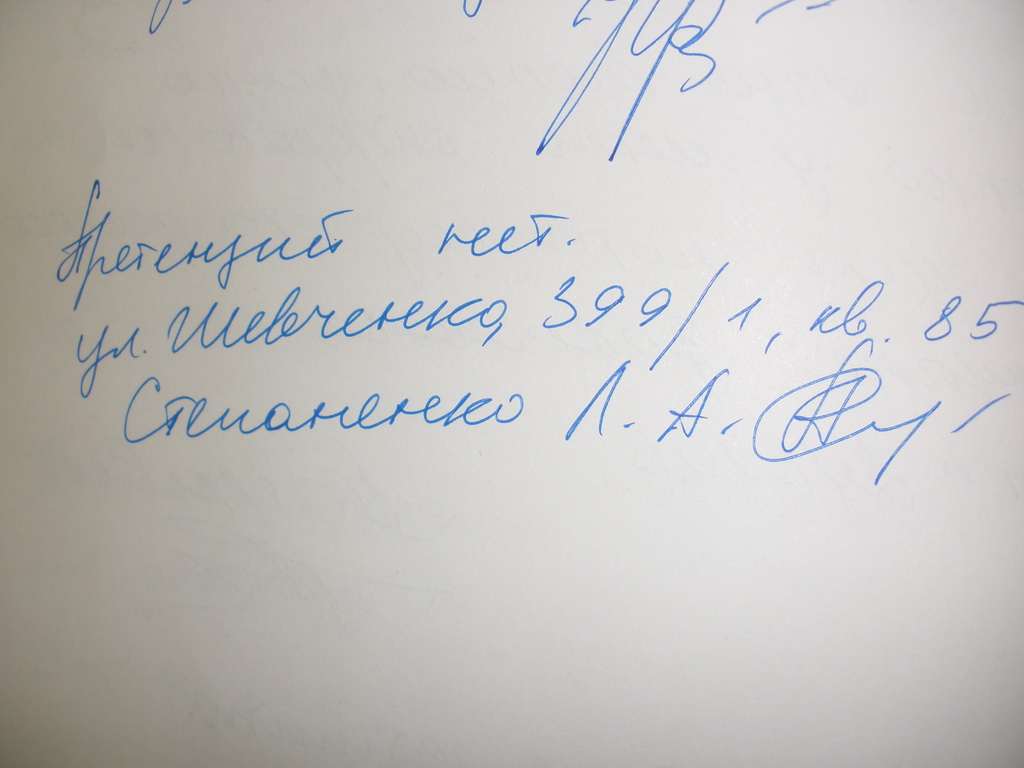 Претензий нет.
ул. Шевченко, 399/1, кв. 85
Степаненко Л. А.